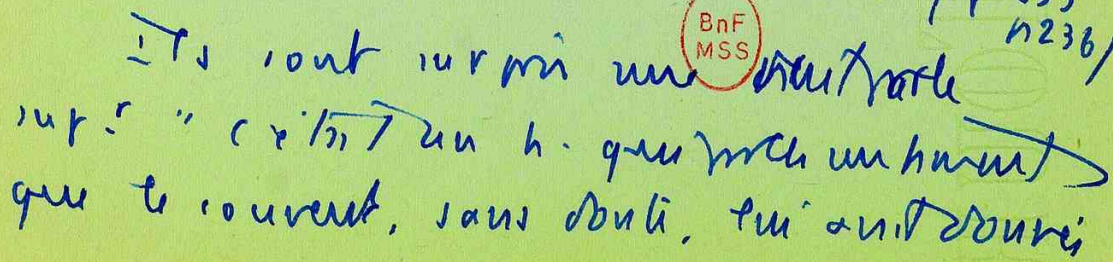 n236/
BnF
MSS
Ils sont surpris une
sup.r " c'était un h. qui porte un
que le couvent, sans doute, lui avait donné